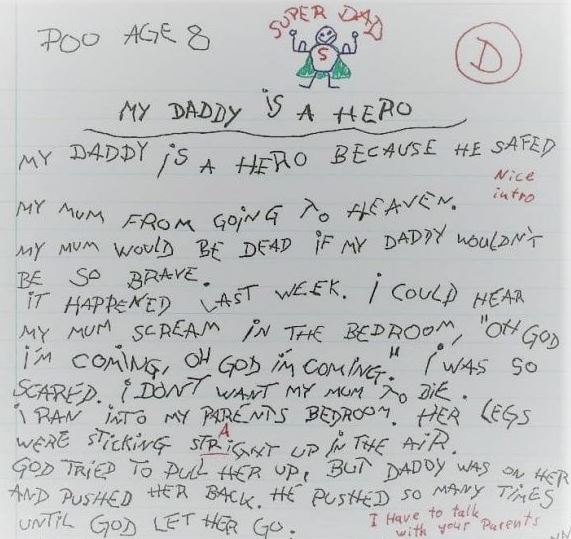 POO AGE 8
SUPER DAD
S
D
MY DADDY iS A HERO
MY DADDY iS A HERO BECAUSE HE SAFED
Nice
intro
MY MUM FROM GOiNG TO HEAVEN.
MY MUM WOULD BE DEAD iF MY DADDY WOULDN'T
BE SO BRAVE.
iT HAPPENED LAST WEEK. i COULD HEAR
MY MUM SCREAM iN THE BEDROOM, "OH GOD
i'M COMiNG, OH GOD iM COMiNG." i WAS SO
SCARED. i DON'T WANT MY MUM TO DiE.
i RAN iNTO MY PARENTS BEDROOM. HER LEGS
A
WERE STiCKiNG STRiGHT UP iN THE AiR.
GOD TRiED TO PULL HER UP, BUT DADDY WAS ON HER
AND PUSHED HER BACK. HE PUSHED SO MANY TiMES
UNTiL GOD LET HER GO.
I Have to talk
with your Parents